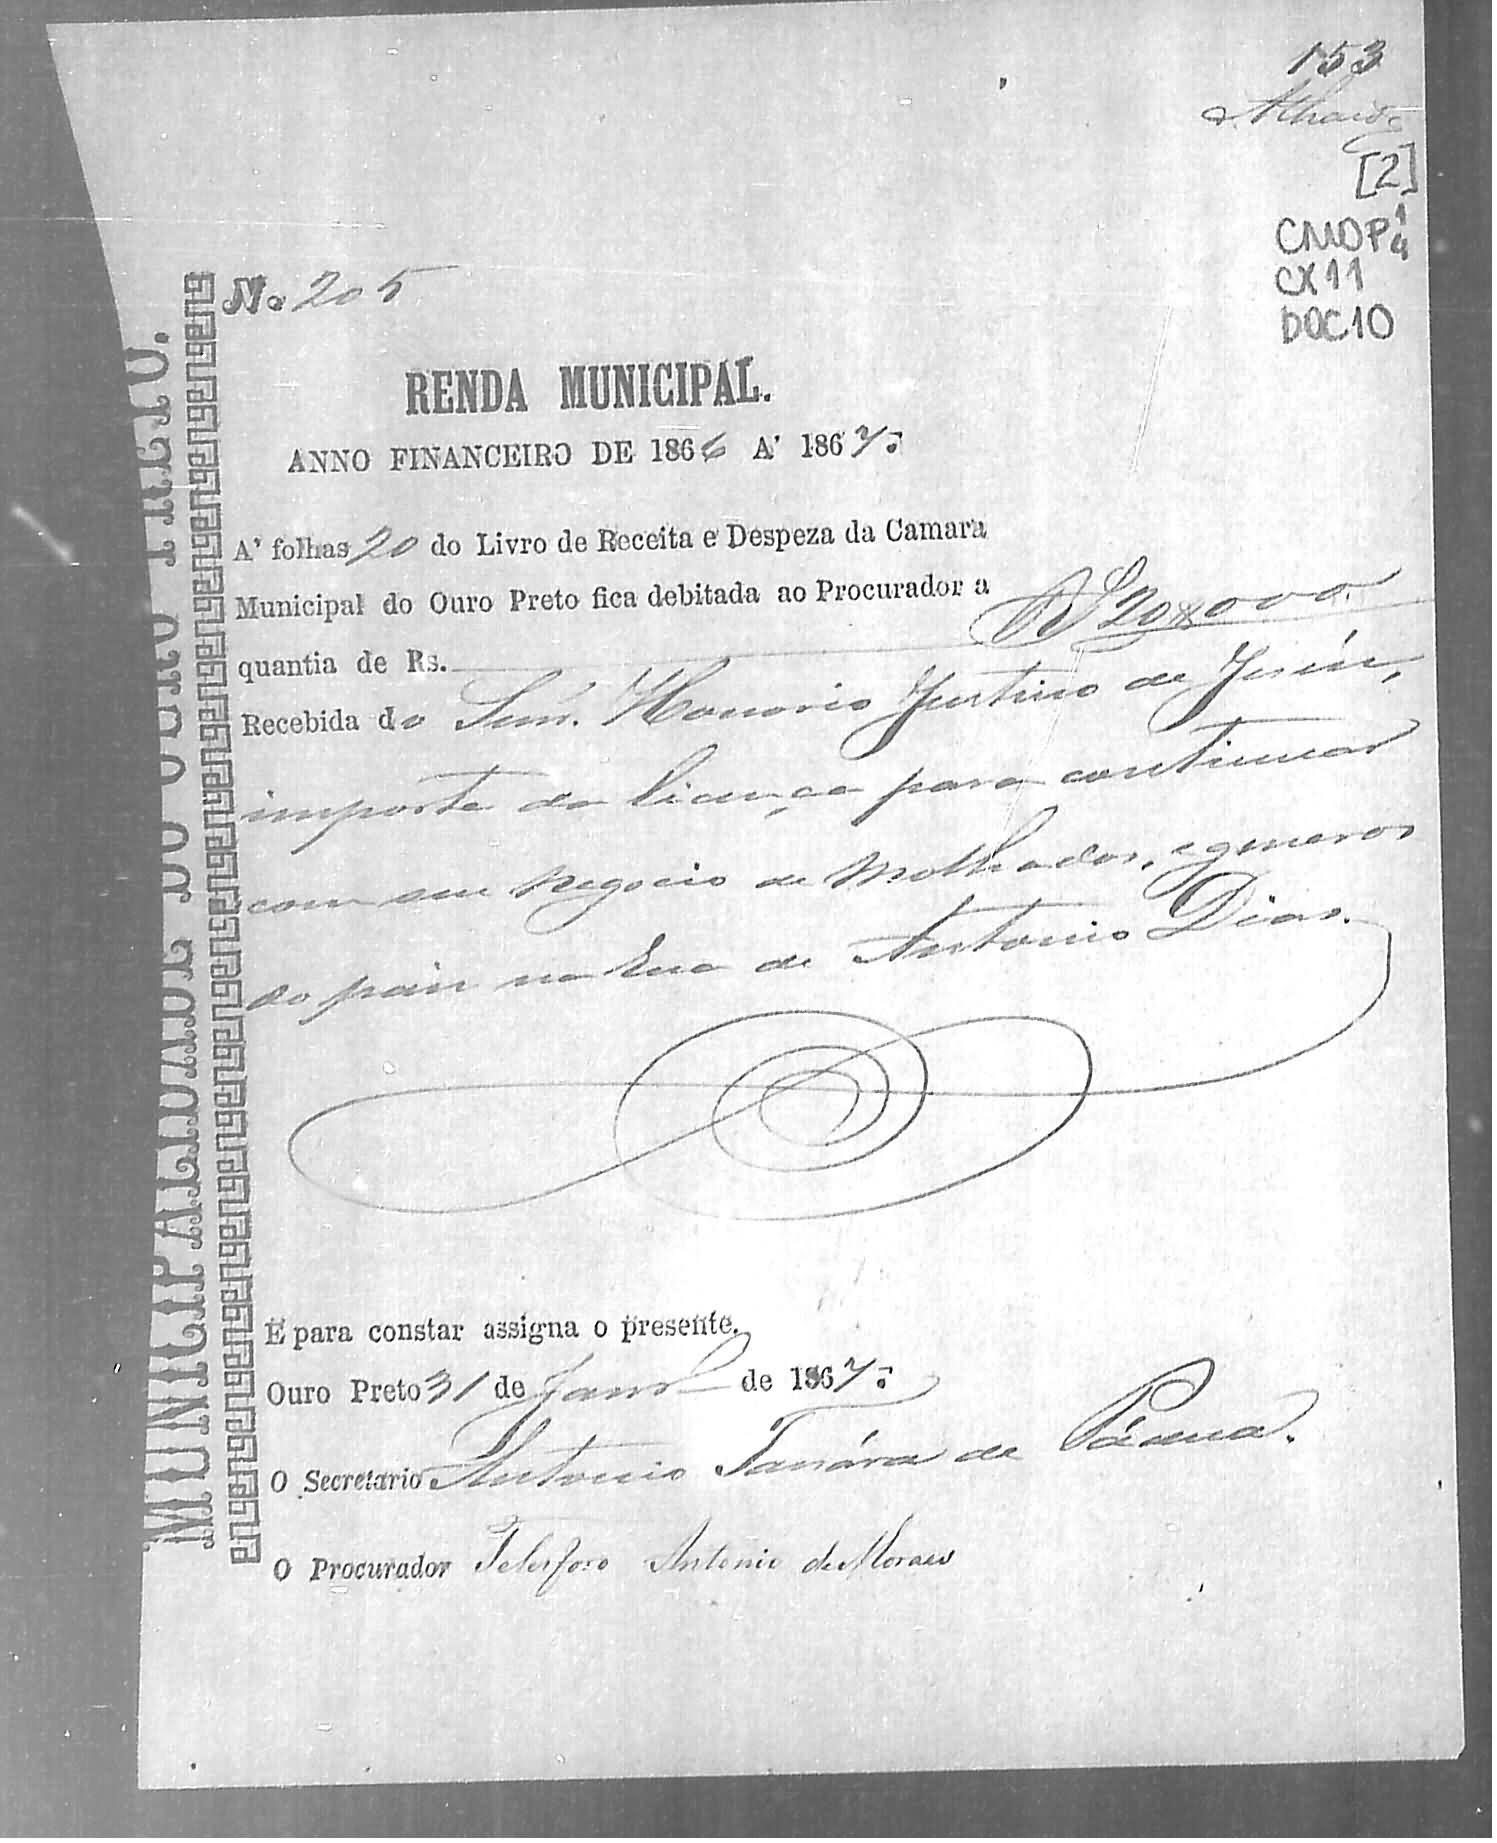 153
Athaide
[2]
CMOP 1/4
CX11
DOC10
MUNICIPALIDADE DO OURO PRETO.
No. 205
RENDA MUNICIPAL.
ANNO FINANCEIRO DE 1866 A' 1867.
A' folhas 20 do Livro de Receita e Despeza da Camara
Municipal do Ouro Preto fica debitada ao Procurador a
quantia de Rs. 20$000.
Recebida do Snr. Honorio Justino de Jesus,
importe da licença para continuar
com seu negocio de Molhados, e generos
do pais na Rua de Antonio Dias.
E para constar assigna o presente.
Ouro Preto 31 de Janro de 1867.
O Secretario Antonio de
O Procurador Telesforo Antonio de Moraes